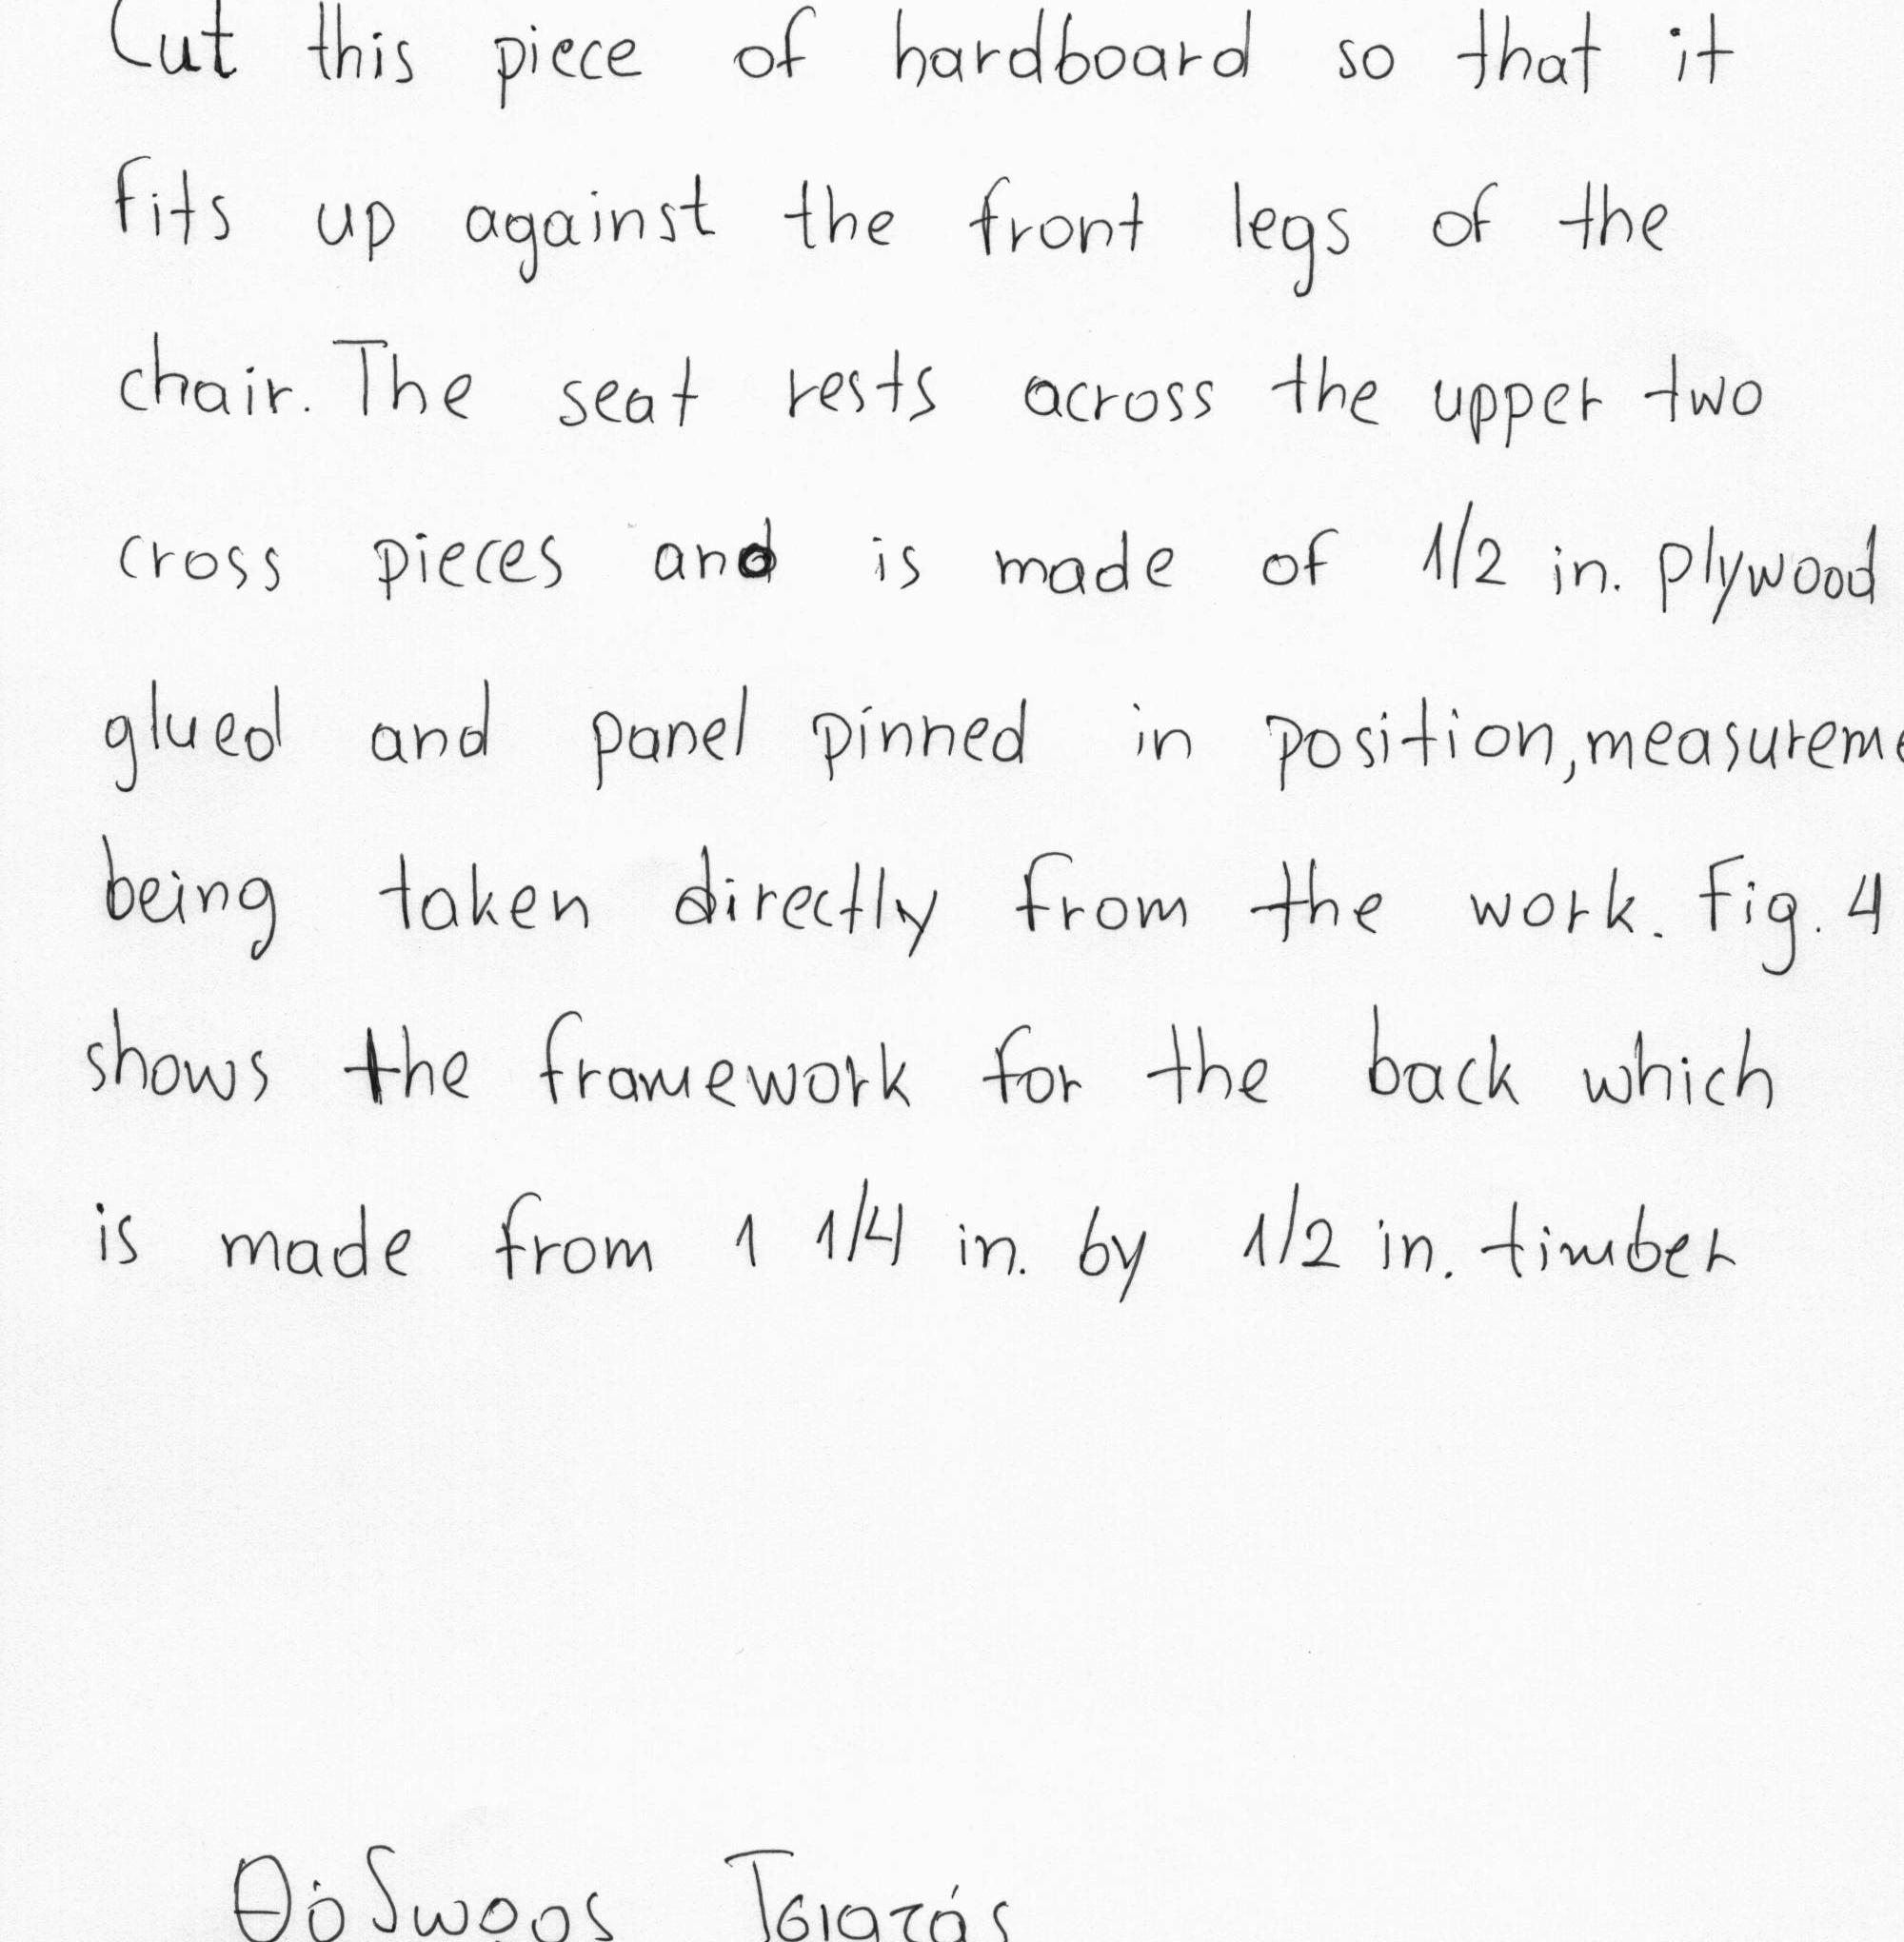 Cut this piece of hardboard so that it
fits up against the front legs of the
chair. The seat rests across the upper two
cross pieces and is made of 1/2 in. plywood
glued and panel pinned in position, measureme
being taken directly from the work. Fig. 4
shows the framework for the back which
is made from 1 1/4 in. by 1/2 in. timber
Θόδωρος Τσιατάς